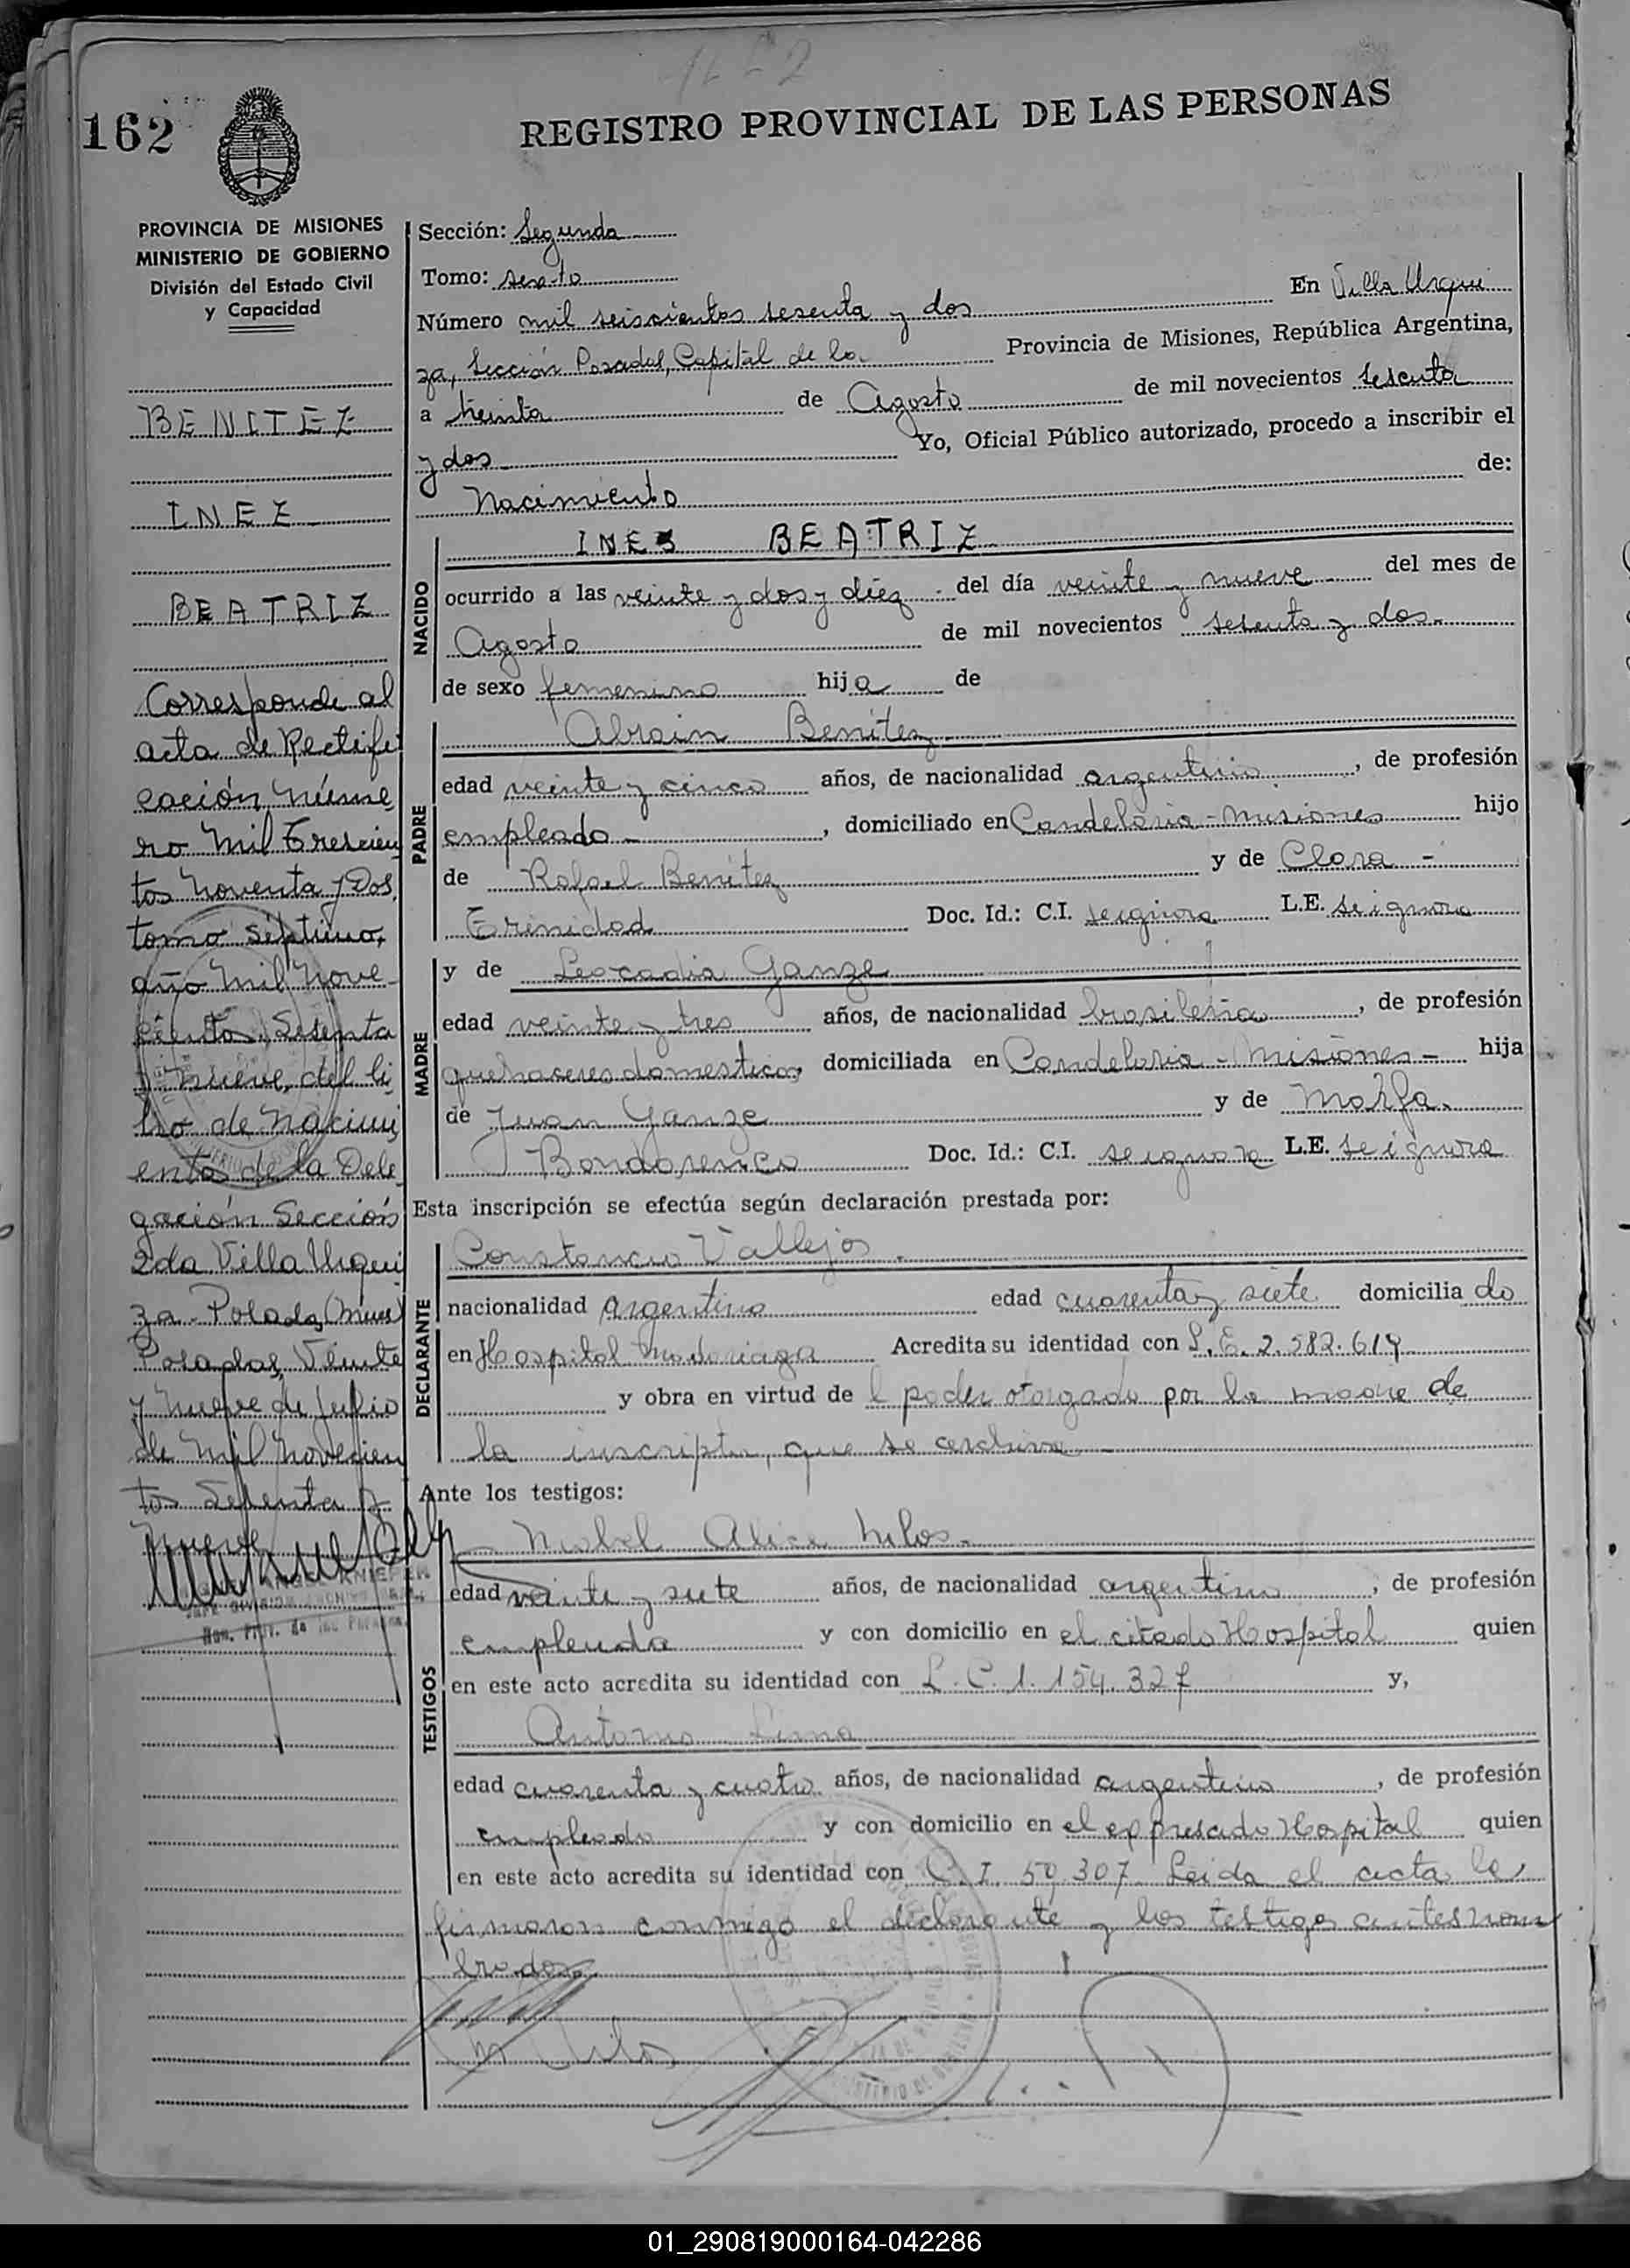 162
REGISTRO PROVINCIAL DE LAS PERSONAS
PROVINCIA DE MISIONES
MINISTERIO DE GOBIERNO
División del Estado Civil
y Capacidad
BENITEZ
INEZ
BEATRIZ
Corresponde al
acta de Rectifi
cación, núme
ro Mil Trescien
tos Noventa y Dos,
tomo séptimo,
año mil nove
cientos Setenta
y nueve, del li
bro de nacimi
entos de la Dele
gación Sección
2da Villa Urqui
za - Posadas (Mnes)
Posadas, Veinte
y nueve de Julio
de mil novecien
tos Setenta y
nueve
Sección: Segunda
Tomo: sexto
Número mil seiscientos sesenta y dos En Villa Urqui
za, Sección Posadas, Capital de la Provincia de Misiones, República Argentina,
a treinta de Agosto de mil novecientos sesenta
y dos Yo, Oficial Público autorizado, procedo a inscribir el
Nacimiento de:
NACIDO
INES BEATRIZ
ocurrido a las veinte y dos y diez del día veinte y nueve del mes de
Agosto de mil novecientos sesenta y dos
de sexo femenino hija de
PADRE
Abrain Benítez
edad veinte y cinco años, de nacionalidad argentino, de profesión
empleado, domiciliado en Candelaria - Misiones hijo
de Rafael Benítez y de Clara -
Trinidad Doc. Id.: C.I. se ignora L.E. se ignora
MADRE
y de Leocadia Ganze
edad veinte y tres años, de nacionalidad brasileña, de profesión
quehaceres domesticos domiciliada en Candelaria - Misiones - hija
de Juan Ganze y de Marfa
Bondarenco Doc. Id.: C.I. se ignora L.E. se ignora
Esta inscripción se efectúa según declaración prestada por:
DECLARANTE
Constancio Vallejos
nacionalidad Argentino edad cuarenta y siete domiciliado
en Hospital Madariaga Acredita su identidad con L.E. 2.582.614
y obra en virtud del poder otorgado por la madre de
la inscripta, que se archiva
Ante los testigos:
TESTIGOS
Mabel Alice
edad veinte y siete años, de nacionalidad argentina, de profesión
empleada y con domicilio en el citado Hospital quien
en este acto acredita su identidad con L.C. 1.154.327 y,
Antonio Lima
edad cuarenta y cuatro años, de nacionalidad argentino, de profesión
empleado y con domicilio en el expresado Hospital quien
en este acto acredita su identidad con C.I. 59.307 Leida el acta la
firmaron conmigo el declarante y los testigos antes nom
brados
01_290819000164-042286